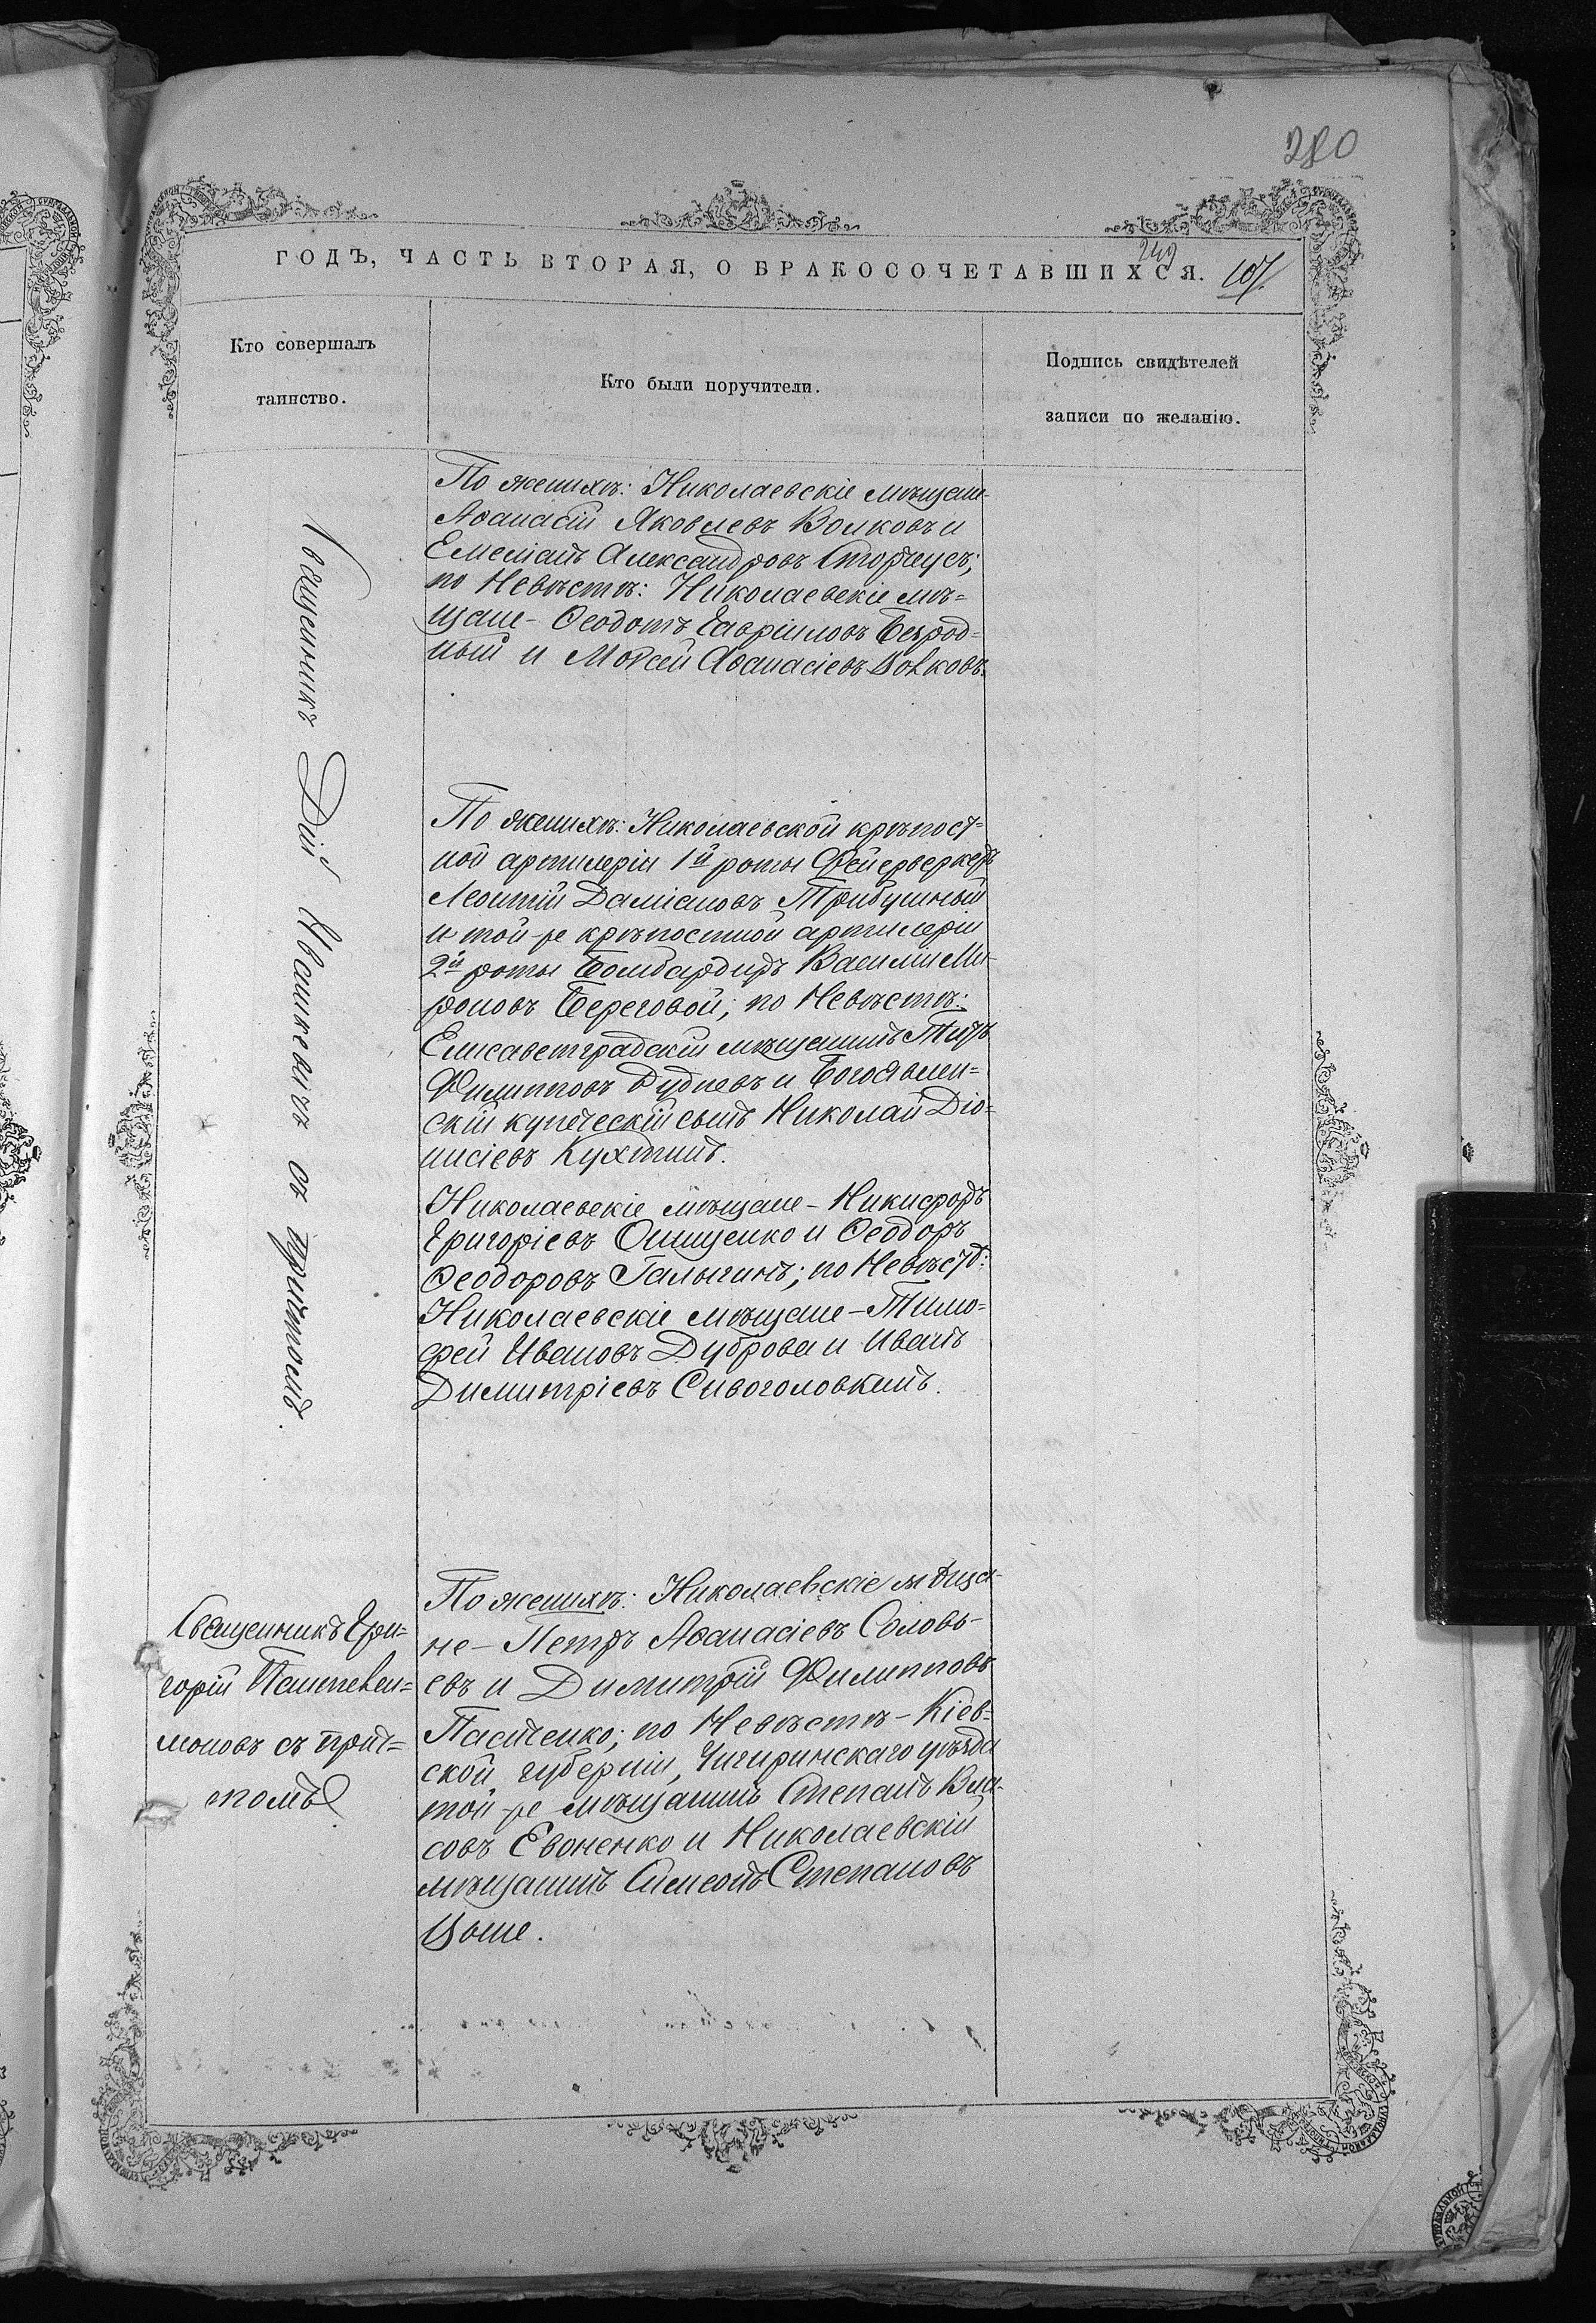 280
ГОДЪ, ЧАСТЬ ВТОРАЯ, О БРАКОСОЧЕТАВШИХСЯ.
249
107
Кто совершалъ
таинство.
Кто были поручители.
Подпись свидѣтелей
записи по желанію.
Священникъ Дій Ивашкевичъ съ причтомъ.
По женихѣ: Николаевскіе мѣщане-
Аѳанасій Яковлевъ Волковъ и
Емеліанъ Александровъ Сторчеусъ;
по невѣстѣ: Николаевскіе мѣ=
щане - Ѳеодотъ Гавріиловъ Безрод=
ный и Моѵсей Аѳанасіевъ Волковъ.
По женихѣ: Николаевской крѣпост=
ной артилеріи 1й роты Фейерверкеръ
Леонтій Даміановъ Трибушный
и той-же крѣпостной артилеріи
2й роты Бомбардиръ Василій Ми-
роновъ Береговой; по Невѣстѣ:
Елисаветградскій мѣщанинъ Титъ
Филипповъ Дудневъ и Богоявлен=
скій купеческій сынъ Николай Діо=
нисіевъ Кухтинъ.
Николаевскіе мѣщане - Никифоръ
Григоріевъ Онищенко и Ѳеодоръ
Ѳеодоровъ Галыгинъ; по Невѣстѣ:
Николаевскіе мѣщане - Тимо=
фей Ивановъ Дуброва и Иванъ
Димитріевъ Сивоголовкинъ.
Священникъ Гри=
горій Пантелеи=
моновъ съ прич=
томъ
По женихѣ: Николаевскіе мѣща-
не - Петръ Аѳанасіевъ Соловь-
евъ и Димитрій Филипповъ
Пастенко; по Невѣстѣ - Кіев=
ской губерніи, Чигиринскаго уѣзда
той-же мѣщанинъ Степанъ Вла-
совъ Евоненко и Николаевскій
мѣщанинъ Симеонъ Степановъ